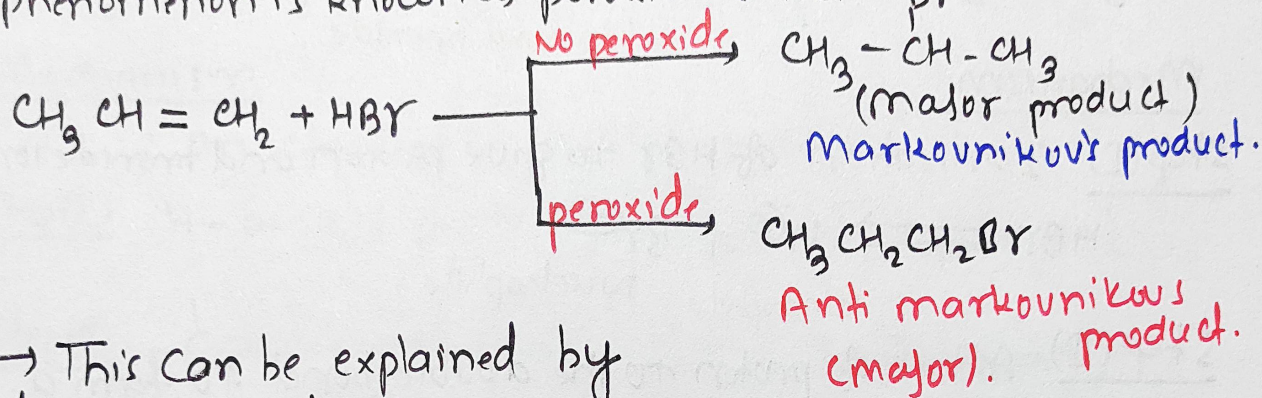 phenomenon is known as
Br
No peroxide CH₃ - CH - CH₃
(major product)
CH₃ CH = CH₂ + HBr
Markovnikov's product.
peroxide
CH₃ CH₂ CH₂ Br
Anti markovnikovs
product.
(major).
→ This can be explained by